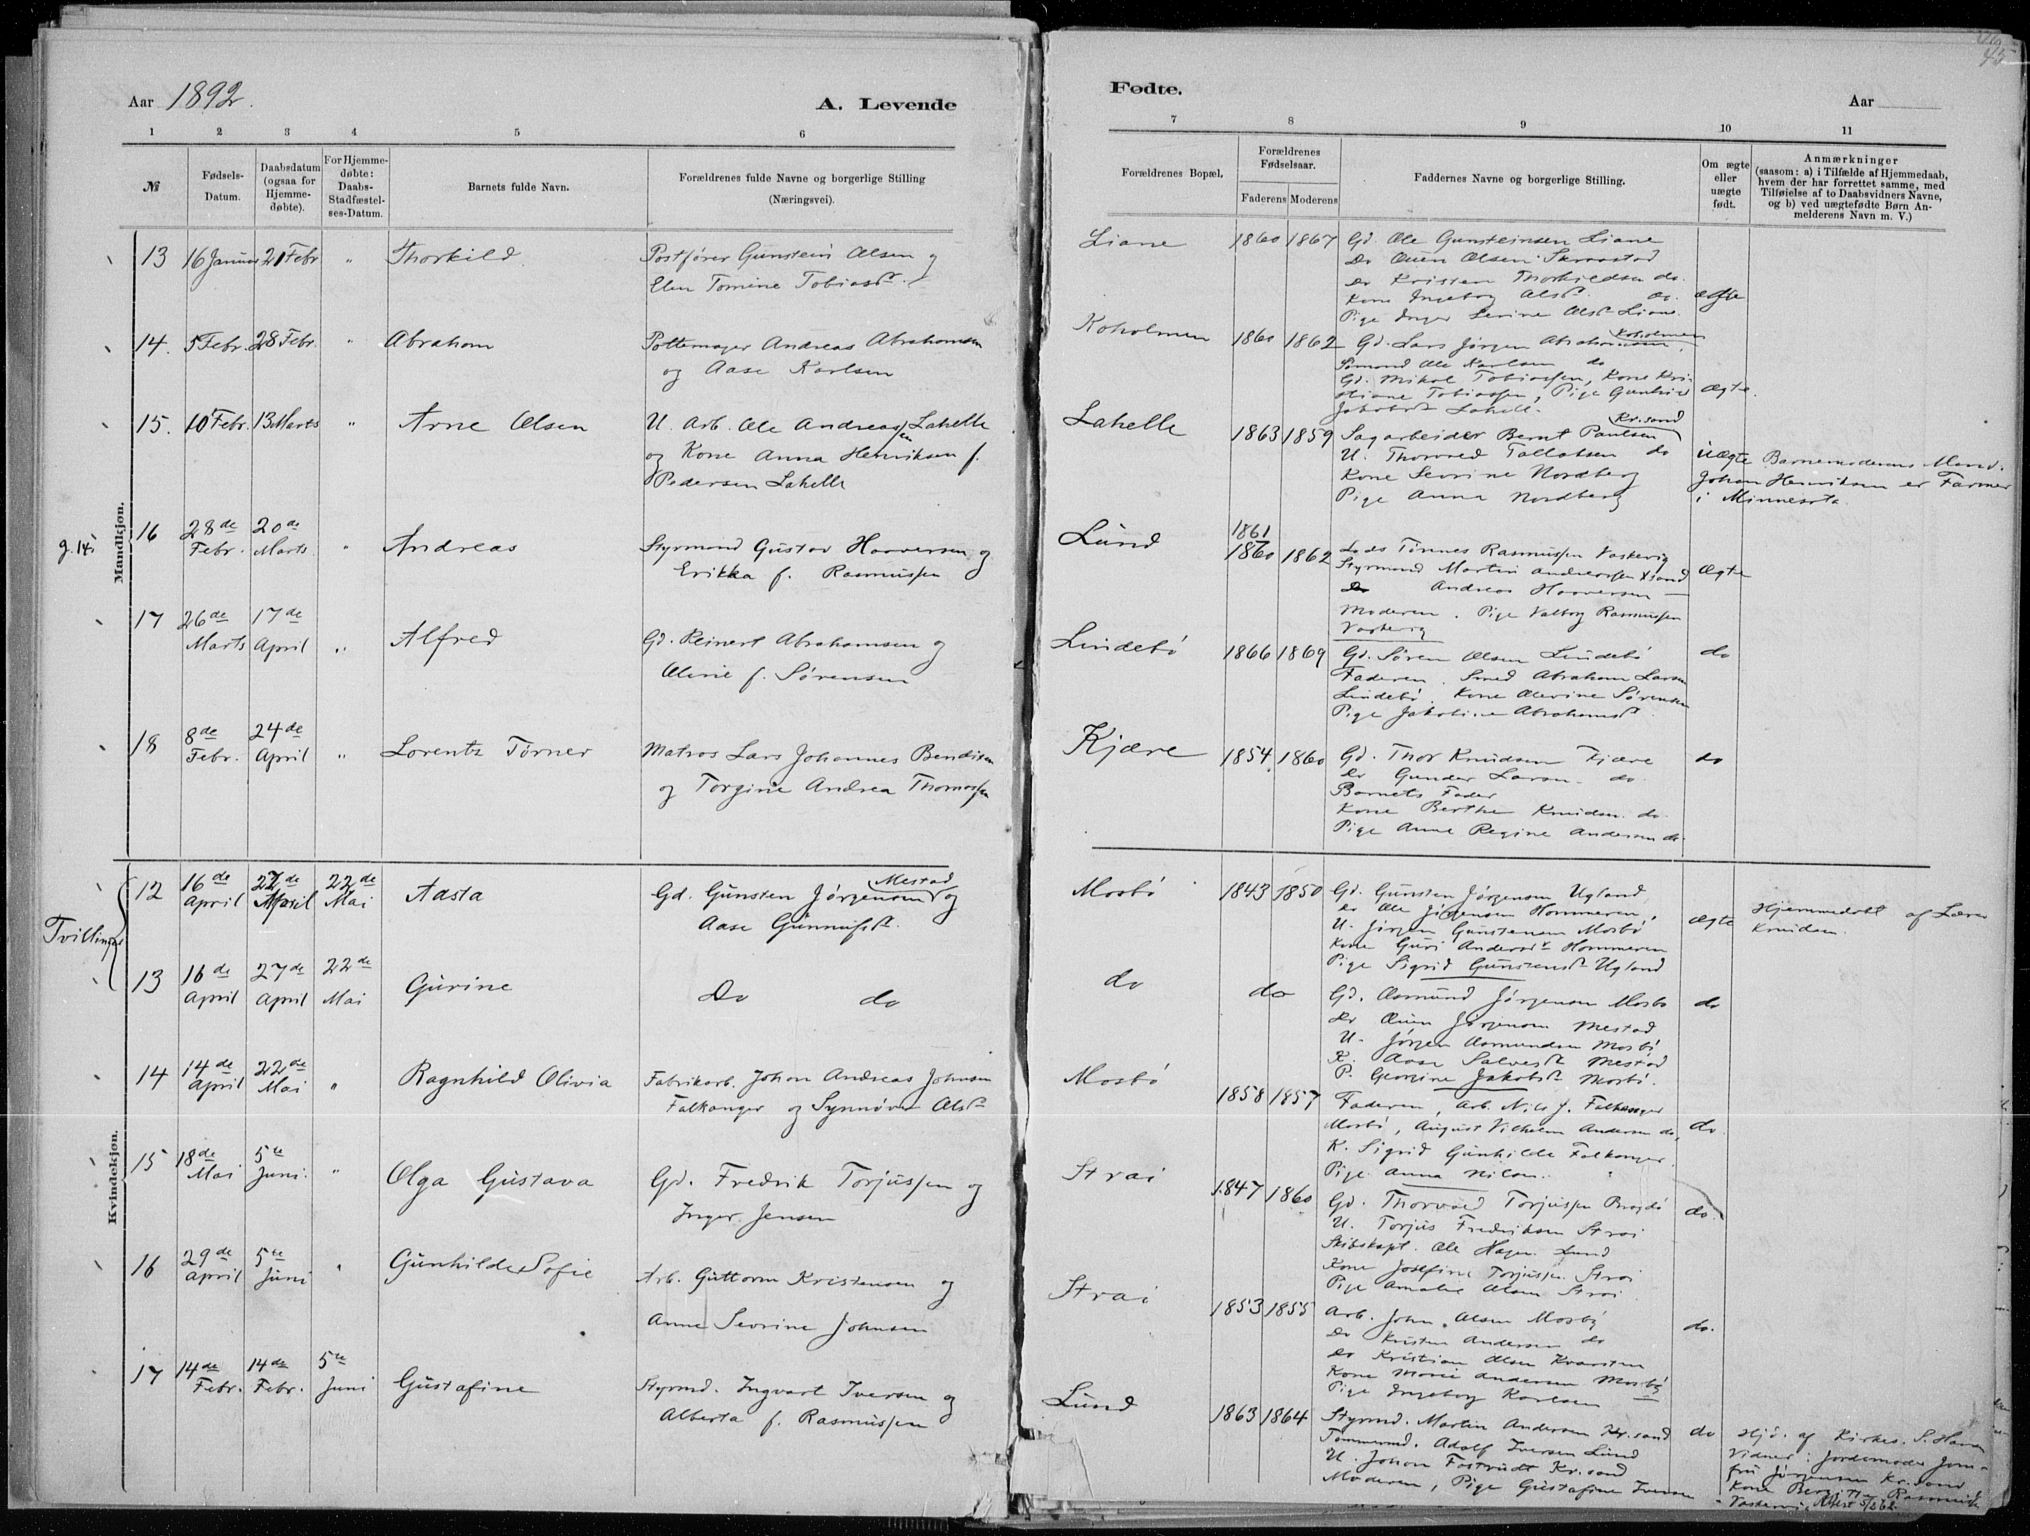 Aar 1892.
A. Levende
1 2 3 4 5 6
№
Fødsels-
Datum.
Daabsdatum
(ogsaa for
Hjemme-
døbte).
For Hjemme-
døbte:
Daabs-
Stadfæstel-
ses-Datum.
Barnets fulde Navn.
Forældrenes fulde Navne og borgerlige Stilling
(Næringsvei).
Mandkjøn.
13 16 Januar 21 Febr " Thorkild
Postfører Gunstein Olsen og
Elen Tomine Tobiasd.
14. 5 Febr. 28 Febr. " Abraham
Pottemager Andreas Abrahamsen
og Aase Karlsen
15. 10 Febr. 13 Marts " Arne Olsen
U. Arb. Ole Andreassen Lahelle
og Kone Anna Henriksen f.
Pedersen Lahelle
16 28de Febr. 20de Marts " Andreas
Styrmand Gustav Haaversen og
Erikka f. Rasmussen
17 26de Marts 17de April " Alfred
Gd. Reinert Abrahamsen og
Oline f. Sørensen
18 8de Febr. 24de April " Lorentz Tørner
Matros Lars Johannes Bendixen
og Torgine Andrea Thomassen
Kvindekjøn.
Tvillinger
12 16de April 27de April 22de Mai Aasta
Gd. Gunsten Jørgensen Mestad og
Aase Gunnufsd.
13 16de April 27de April 22de Mai Gurine
Do do
14 14de April 22de Mai " Ragnhild Olivia
Fabrikarb. Johan Andreas Johnsen
Falkanger og Synnøve Olsd.
15 18de Mai 5te Juni. " Olga Gustava
Gd. Fredrik Torjussen og
Inger Jensen
16 29de April 5te Juni " Gunhilde Sofie
Arb. Guttorm Kristensen og
Anne Sevrine Johnsen
17 14de Febr. 14de Febr. 5te Juni Gustafine
Styrmd. Ingvart Iversen og
Alberta f. Rasmussen
Fødte.
Aar
7 8 9 10 11
Forældrenes Bopæl.
Forældrenes
Fødselsaar.
Faderens Moderens
Faddernes Navne og borgerlige Stilling.
Om ægte
eller
uægte
født.
Anmærkninger
(saasom: a) i Tilfælde af Hjemmedaab,
hvem der har forrettet samme, med
Tilføielse af to Daabsvidners Navne,
og b) ved uægtefødte Børn An-
melderens Navn m. V.)
Liane 1860 1867 Gd. Ole Gunsteinsen Liane
Do Ouen Olsen Skraastad
Do Kristen Thorkildsen do.
Kone Ingeborg Olsd. do. ægte
Pige Inger Serine Olsd Liane
Koholmen 1860 1862 Gd. Lars Jørgen Abrahamsen Koholmen
Sømand Ole Karlsen do
Gd. Mikal Tobiassen, Kone Kri-
stiane Tobiassen, Pige Gunhild ægte.
Jakobsd. Lahell.
Lahelle 1863 1859 Sagarbeider Bernt Paulsen Kr.sand
U. Thorvald Tallaksen do uægte
Kone Sevrine Nordberg
Pige Anna Nordberg
Barnemoderens Mand.
Johan Henriksen er Farmer
i Minnesota
Lund 1861
1860 1862 Lods Tønnes Rasmussen Vaskerig
Styrmand Martin Andreassen Xsand ægte
Do Andreas Haaversen —
Moderen. Pige Valborg Rasmussen
Vaskerig
Lindebø 1866 1869 Gd. Søren Olsen Lindebø do
Faderen. Smed Abraham Larsen
Lindebø. Kone Olevine Sørensen
Pige Jakobine Abrahamsd.
Kjære 1854 1860 Gd. Thor Knudsen Kjære do
Do Gunder Larsen do.
Barnets Fader
Kone Berthe Knudsen do.
Pige Anne Regine Andersen do.
Mosbø 1843 1850 Gd. Gunsten Jørgensen Ugland
Do Ole Jørgensen Hommeren, ægte
U. Jørgen Gunstensen Mosbø
Kone Guri Andersd. Hommeren
Pige Sigrid Gunstensd. Ugland
Hjemmedøbt af Lærer
Knudsen.
do do Gd. Aasmund Jørgensen Mosbø do
Do Ouen Jørgensen Mestad
U. Jørgen Aasmundsen Mosbø
K. Aase Salvesd. Mestad
P. Georgine Jakobsd. Mosbø.
Mosbø 1858 1857 Faderen, Arb. Nils J. Falkanger
Mosbø, August Vilhelm Andersen do, do.
K. Sigrid Gunhilde Falkanger.
Pige Anna Nilsen.
Strai 1847 1860 Gd. Thorvald Torjussen do.
U. Torjus Fredriksen Strai
Skibskapt. Ole Hagen Lund
Kone Josefine Torjussen Strai
Pige Amalie Olsen Strai
Strai 1853 1855 Arb. John Olsen Mosby
Do Kristen Andersen do do.
Do Kristian Olsen Kvarsten
Kone Marie Andersen Mosby
Pige Ingeborg Karlsen —
Lund 1863 1864 Styrmd. Martin Andersen Kr.sand do
Tømmermd. Adolf Iversen Lund
U. Johan Fostrudt Kr.sand
Moderen, Pige Gustafine Iversen
Hjd. af Kirkes.
Vidner: Jordemoder Jom-
fru Jørgensen Kr.sand
Kone Rasmussen